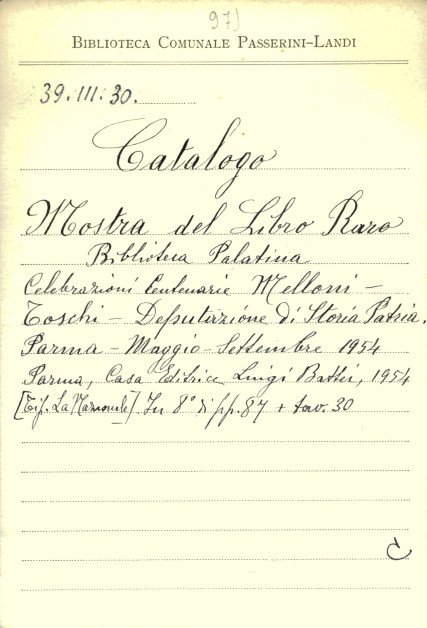 97)
BIBLIOTECA COMUNALE PASSERINI-LANDI
39.III.30.
Catalogo
Mostra del Libro Raro
Biblioteca Palatina
Celebrazioni Centenarie Melloni -
Toschi - Deputazione di Storia Patria.
Parma - Maggio - Settembre 1954
Parma, Casa Editrice Luigi Battei, 1954
[Tip. La Nazionale] In 8° di pp. 87 + tav. 30
C